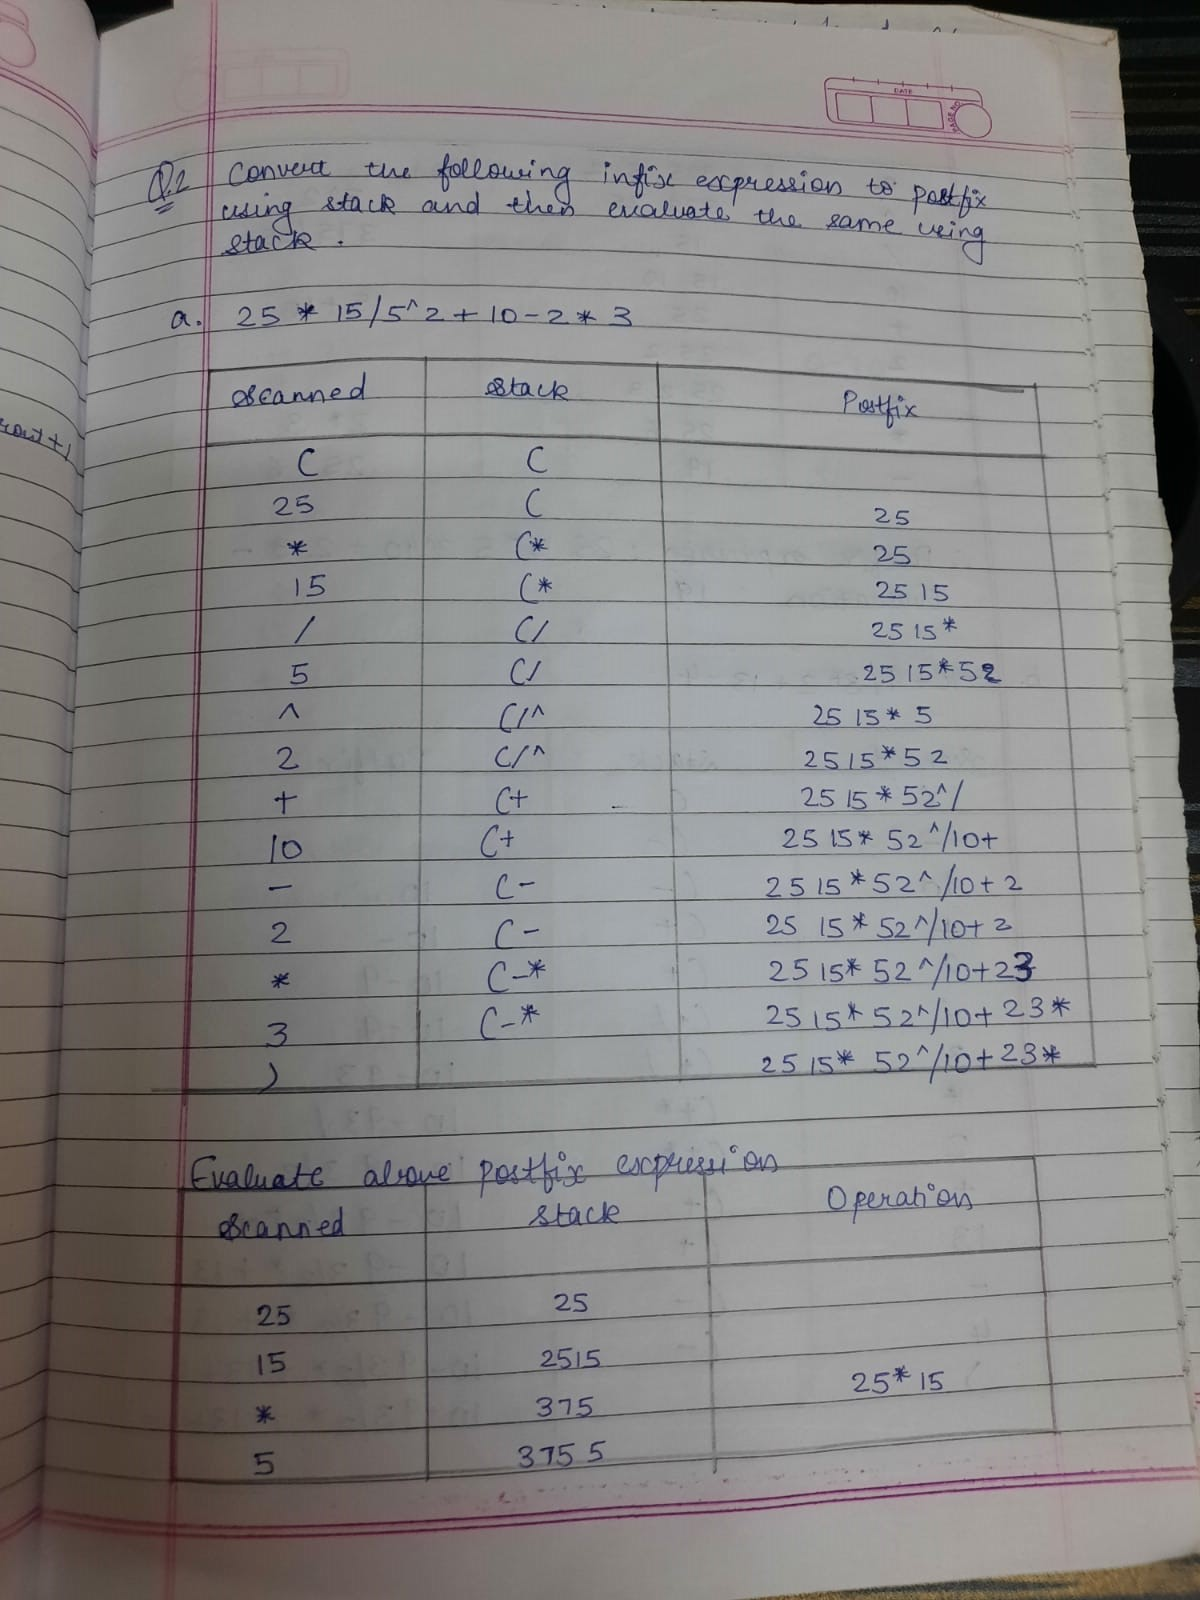 DATE
PAGE NO
Q.2 Convert the following infix expression to postfix
using stack and then evaluate the same using
stack.
a. 25 * 15/5^2+10-2*3
Scanned Stack Postfix
( (
25 ( 25
* (* 25
15 (* 25 15
/ (/ 25 15*
5 (/ 25 15*52
^ (/^ 25 15* 5
2 (/^ 25 15*52
+ (+ 25 15*52^/
10 (+ 25 15* 52^/10+
- (- 25 15*52^/10+2
2 (- 25 15*52^/10+2
* (-* 25 15* 52^/10+23
3 (-* 25 15*52^/10+23*
) 25 15* 52^/10+23*
Evaluate above postfix expression
Scanned Stack Operation
25 25
15 2515
* 375 25*15
5 375 5